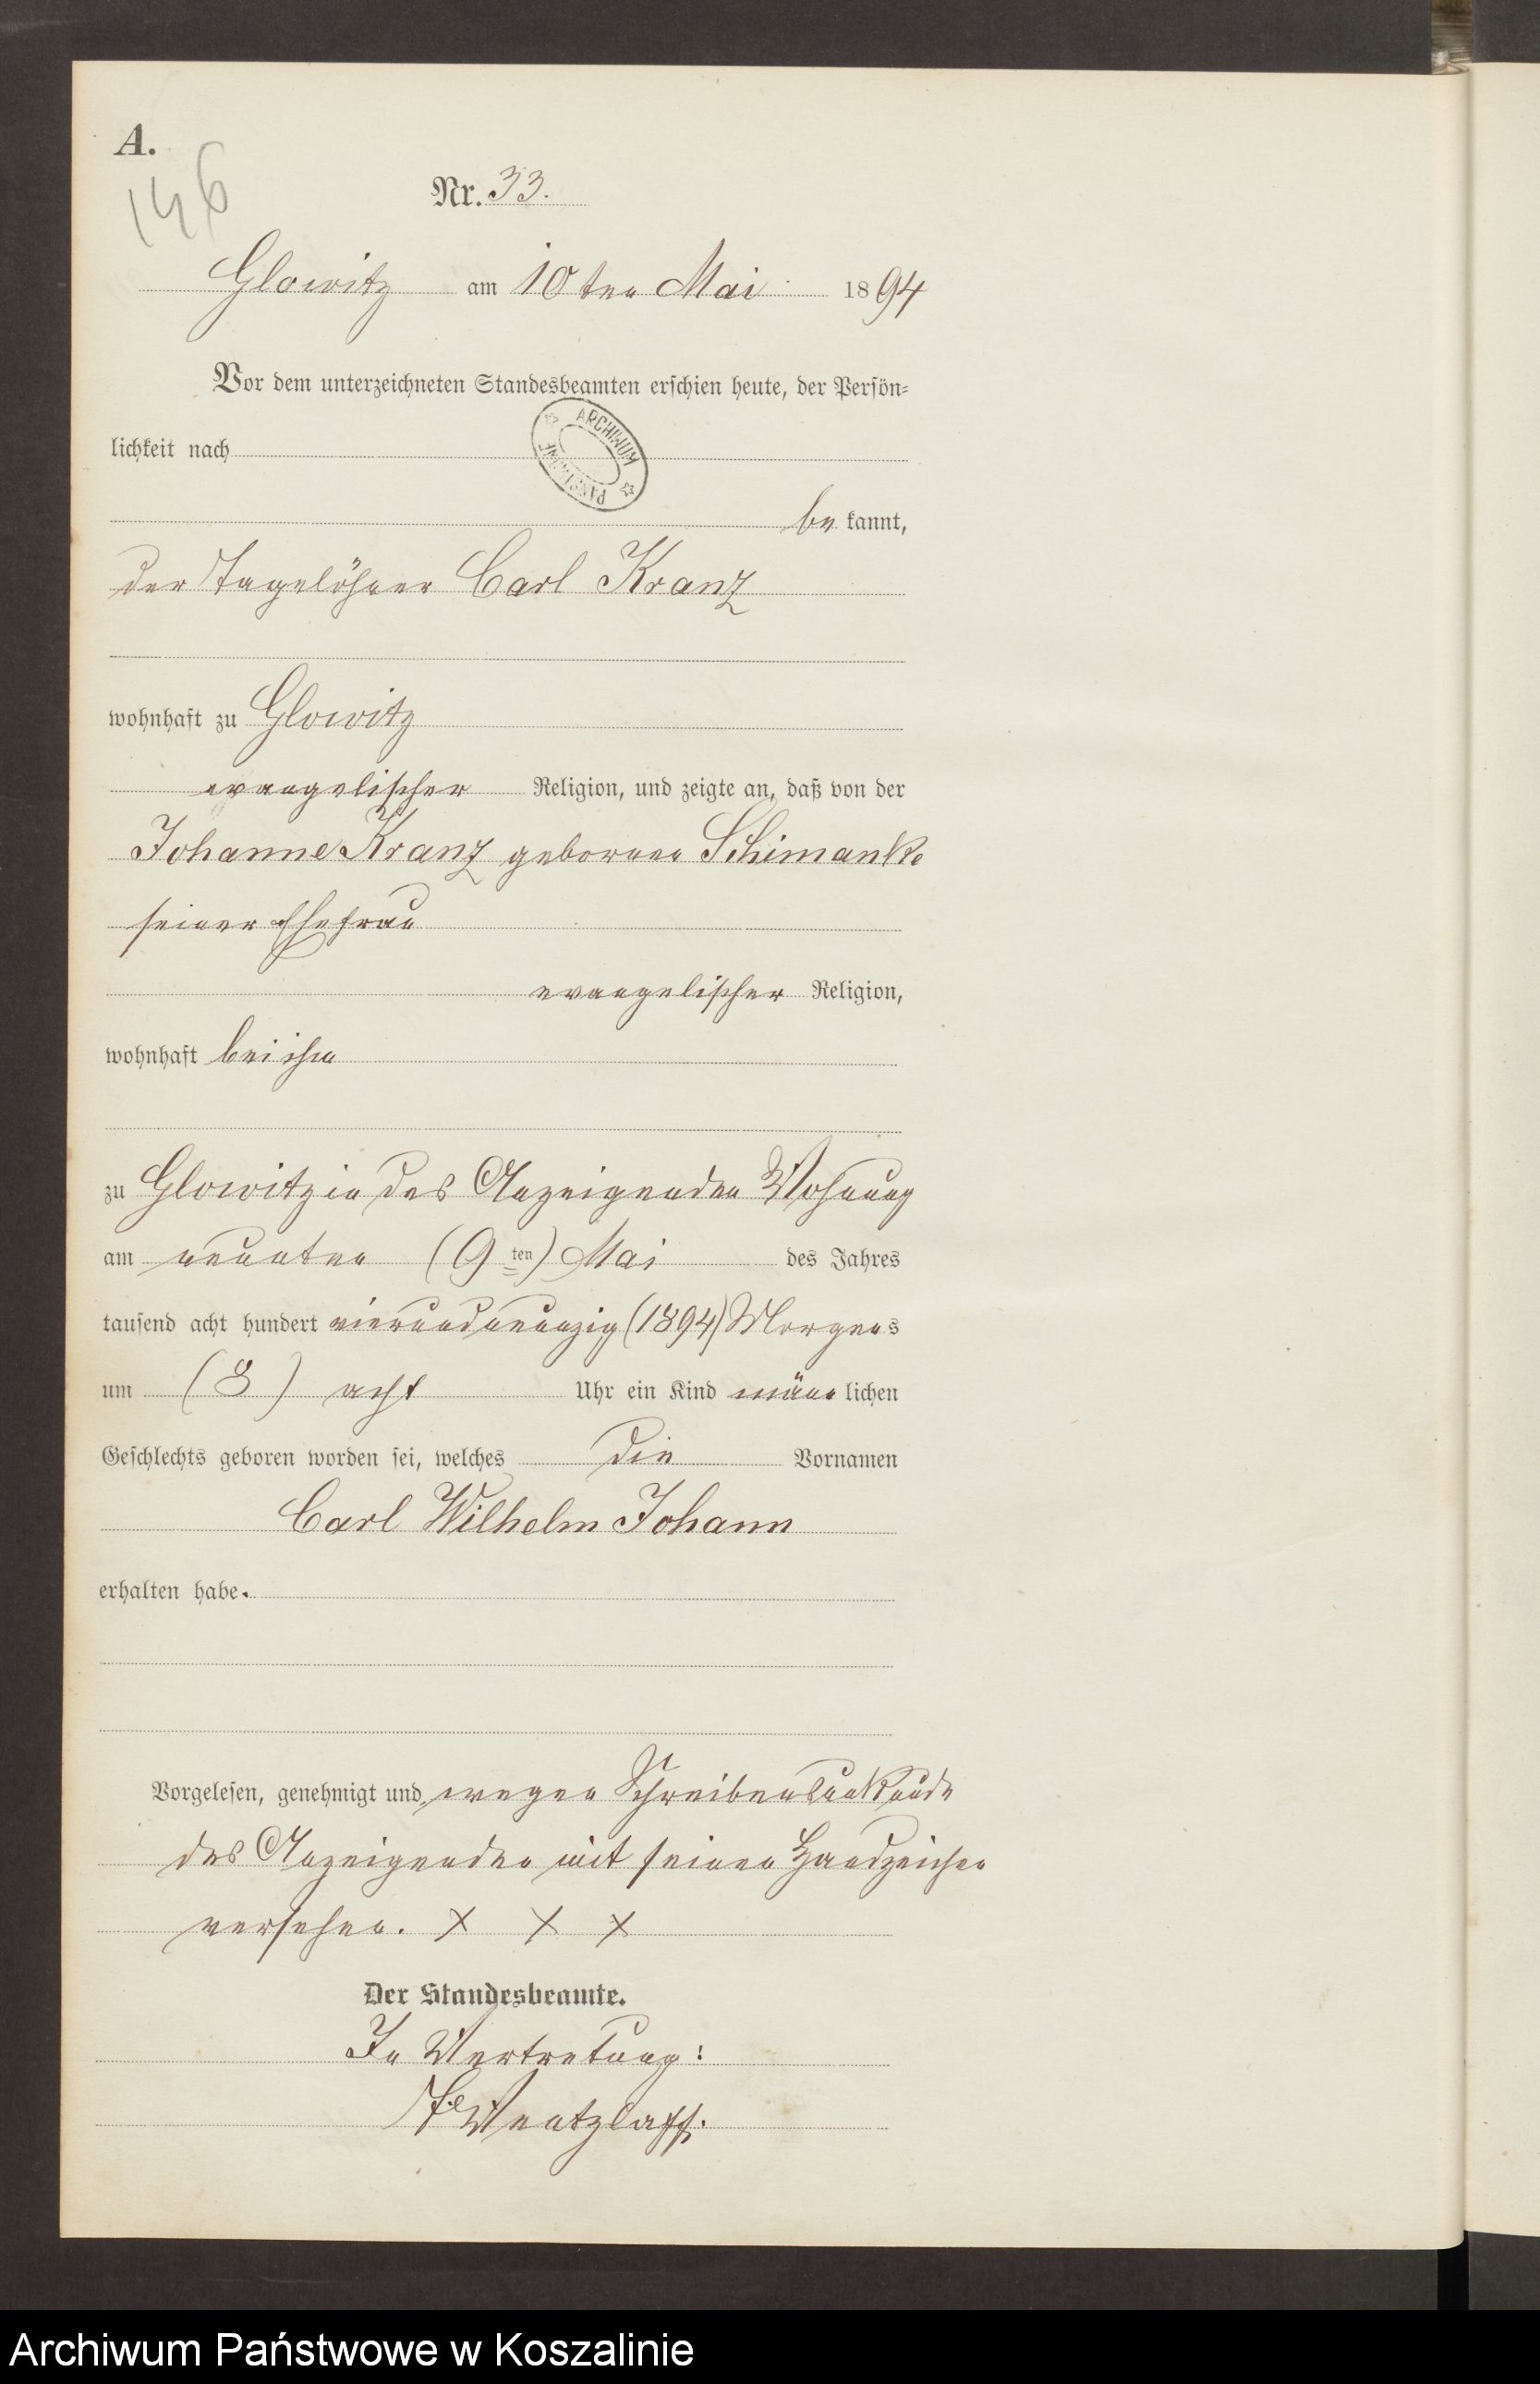 A.
146
Nr. 33.
Glowitz am 10ten Mai 1894
Vor dem unterzeichneten Standesbeamten erschien heute, der Persön-
lichkeit nach
ARCHIWUM PAŃSTWOWE
be kannt,
der Tagelöhner Carl Kranz
wohnhaft zu Glowitz
evangelischer Religion, und zeigte an, daß von der
Johanne Kranz geborenen Schimanke
seiner Ehefrau
evangelischer Religion,
wohnhaft bei ihm
zu Glowitz in des Anzeigenden Wohnung
am neunten (9ten) Mai des Jahres
tausend acht hundert vierundneunzig (1894) Morgens
um (8) acht Uhr ein Kind männlichen
Geschlechts geboren worden sei, welches die Vornamen
Carl Wilhelm Johann
erhalten habe.
Vorgelesen, genehmigt und wegen Schreibensunkunde
des Anzeigenden mit seinen Handzeichen
versehen. X X X
Der Standesbeamte.
In Vertretung:
Wentzlaff.
Archiwum Państwowe w Koszalinie